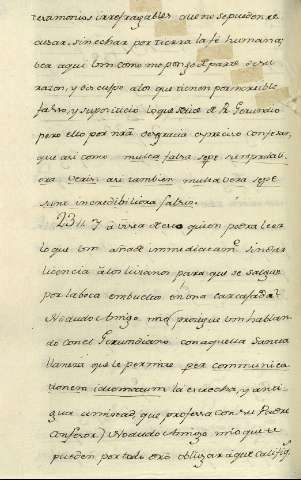 testamonios irrefragables, que no se pueden re
cusar, sin echar por tierra la fé humana;
vea aqui Vm como me pongo de parte de su
razon, y disculpo a los que tienen por increible
falso, y supositicio lo que se dice de Fr. Gerundio
pero ello por nrã desgracia es preciso confesar,
que asi como multa falsa sepe sunt probabili
ora veris; asi tambien multa vera sepe
sunt incredibiliora falsis.
23 Y à vista de eso quien podrà leer
lo que Vm añade immediatamte sin dar
licencia à los livianos para que se salga
por la boca embueltos en una carcajada?
No dudo Amigo mio (prosigue Vm hablan
do con el Gerundiano con aquella Santa
llaneza que le permite per communica
tionem idiomatum la estrecha, y anti
gua amistad, que profesa con su Padre
Confesor) No dudo Amigo mio que se
pueden por todo eso obligar à que califiq.